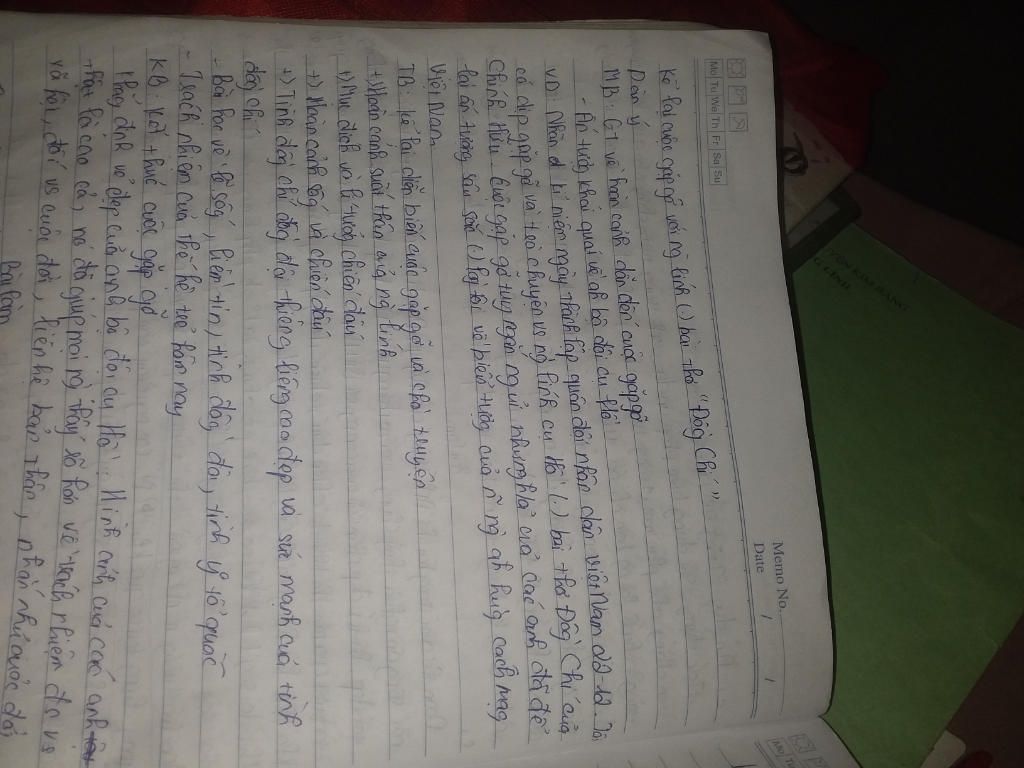 Memo No. / /
Date
Mo Tu We Th Fr Sa Su
Kể lại cuộc gặp gỡ với ng lính (.) bài thơ "Đồng Chí"
Dàn ý
MB: GT về hoàn cảnh dẫn đến cuộc gặp gỡ
- Ấn tượng khái quát về ah bộ đội cụ Hồ
VD: Nhân kỉ niệm ngày thành lập quân đội nhân dân Việt Nam 22-12. Tôi
có dịp gặp gỡ và trò chuyện vs ng lính cụ Hồ (.) bài thơ Đồng Chí của
Chính Hữu cuộc gặp gỡ tuy ngắn ngủi nhưng của các anh đã để
lại ấn tượng sâu sắc (.) lòng tôi về biểu tượng của ng ah hùng cách mạng
Việt Nam
TB: kể lại diễn biến cuộc gặp gỡ và chò truyện
+) Hoàn cảnh xuất thân của ng lính
+) Mục đích và lí tưởng chiến đấu
+) Hoàn cảnh sống và chiến đấu
+) Tình đồng chí đồng đội thiêng liêng cao đẹp và sức mạnh của tình
đồng chí
- Bài học về lẽ sống, niềm tin, tình đồng đội, tình y tổ quốc
- Trách nhiệm của thế hệ trẻ hôm nay
KB: Kết thúc cuộc gặp gỡ
Khẳng định vẻ đẹp của anh bộ đội cụ Hồ. Hình ảnh của các anh
thật là cao cả, nó đã giúp mọi ng thấy rõ hơn về trách nhiệm đv vs
xã hội, đối vs cuộc đời, liên hệ bản thân, nhắn nhủ
Bài làm